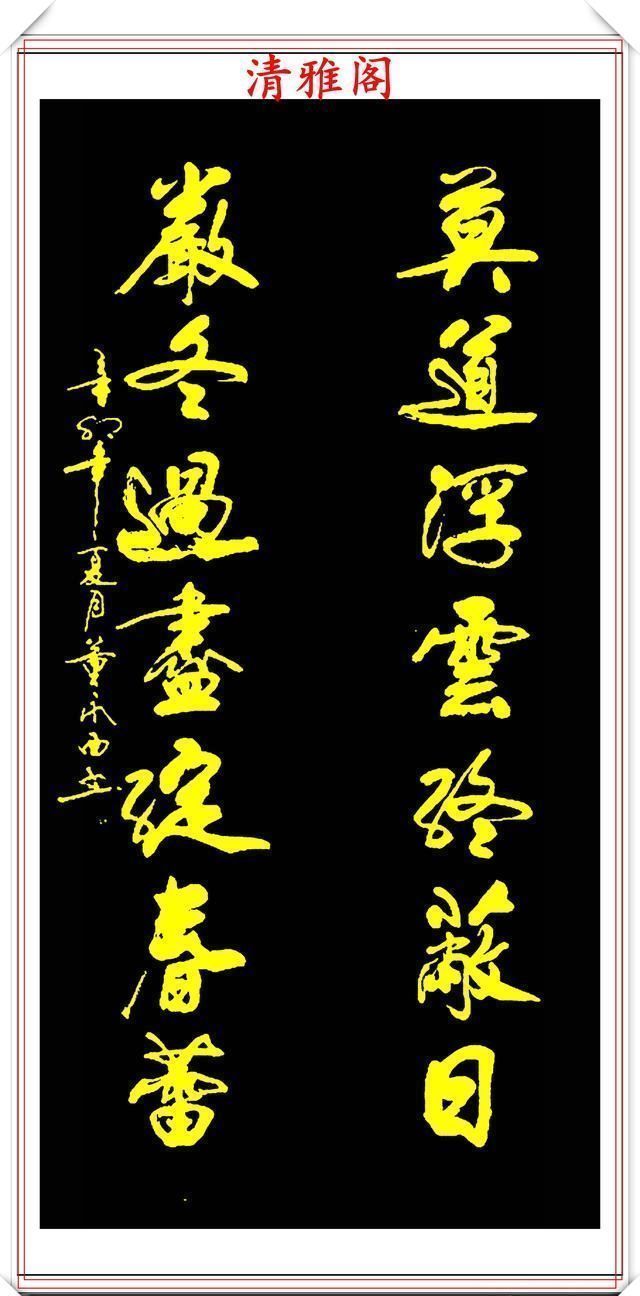 清雅阁
莫道浮雲終蔽日
嚴冬過盡綻春蕾
辛卯年夏月董永西書